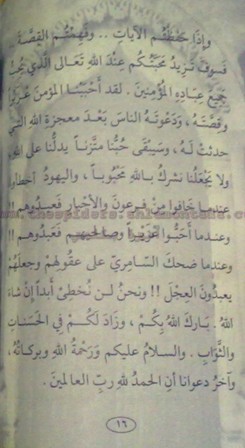 وإذَا حَفَظْتُم الآيَاتِ .. وَفَهِمْتُم القِصَّةَ
فَسَوفَ تَزِيدُ مَحَبَّتُكُم عِنْدَ اللهِ تَعَالى الَّذِي يُحِبُّ
جَمِيعَ عِبَادِهِ المُؤْمِنينَ . لَقَد أَحْبَبْنَا المُؤْمِنَ عُزَيْراً
وَقِصَّتَهُ ، وَدَعْوَتَهُ النَّاسَ بَعْدَ مُعجِزةِ اللهِ الَّتي
حَدثَتْ لَهُ ، وَسَيَبْقَى حُبُّنَا مُتَّزِناً يَدلُّنَا على اللهِ
ولا يَجْعَلُنَا نشركُ باللهِ مَحْبُوباً ، واليهودُ أخطأوا
عندما خَافوا مِنْ فِرعونَ والأَحْبارِ فَعبدُوهم !!
وعندما أَحَبُّوا عُزَيْراً وصَالحِيهِم فَعَبدُوهم !!
وعندما ضحكَ السَّامِريّ على عقُولهمْ وجعلَهُمْ
يعبدُونَ العِجْلَ !! ونحنُ لَـن نُخطِئَ أبداً إنْ شاءَ
اللهُ . بَارَكَ اللهُ بِكُمْ ، وَزَادَ لَكُـمْ في الحَسَنَاتِ
والثَّوَابِ . والسلامُ عليكم وَرَحْمَةُ اللهِ وبركاتُهُ ،
وَآخرُ دعوانا أنِ الحمدُ للهِ ربِّ العالمينَ .
١٦